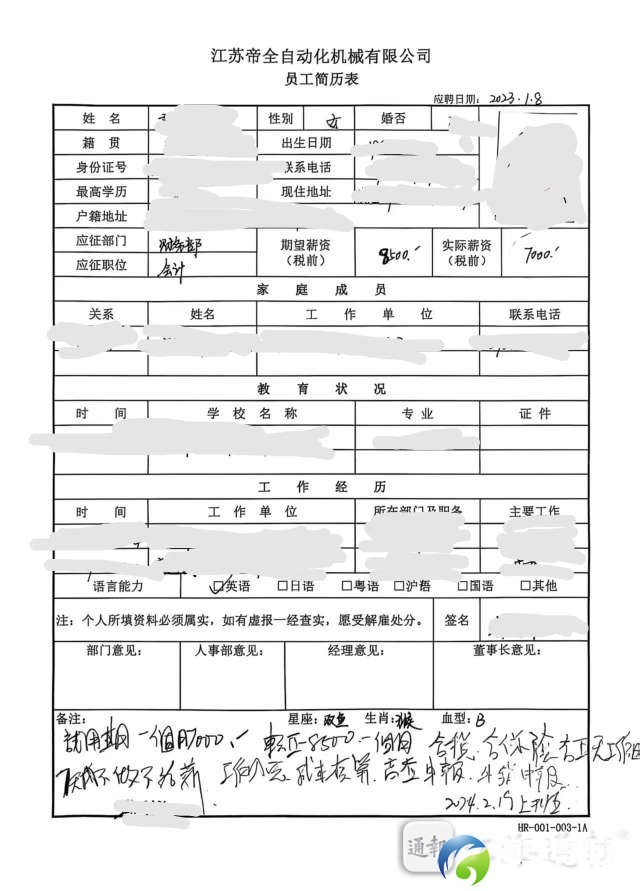 江苏帝全自动化机械有限公司
员工简历表
应聘日期: 2023.1.8
姓名 性别 女 婚否
籍贯 出生日期
身份证号 联系电话
最高学历 现住地址
户籍地址
应征部门 财务部 期望薪资(税前) 8500.- 实际薪资(税前) 7000.-
应征职位 会计
家庭成员
关系 姓名 工作单位 联系电话
教育状况
时间 学校名称 专业 证件
工作经历
时间 工作单位 所在部门及职务 主要工作
语言能力 ☑英语 □日语 □粤语 □沪语 □国语 □其他
注：个人所填资料必须属实，如有虚报一经查实，愿受解雇处分。 签名
部门意见： 人事部意见： 经理意见： 董事长意见：
备注： 星座：双鱼 生肖：猴 血型：B
试用期一个月7000.- 转正8500 一个月 含税 含保险
天内不做不给薪 成本核算 申报
2024.2.19上班
HR-001-003-1A
通報